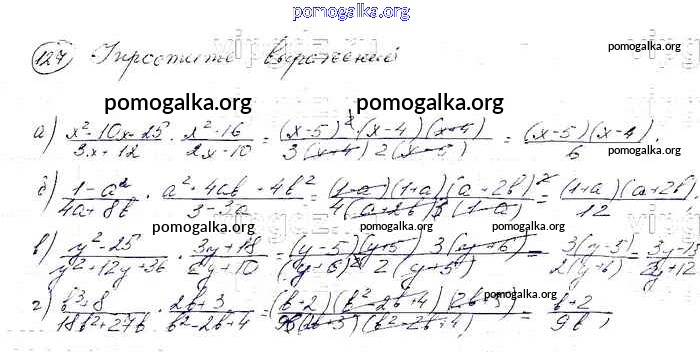 pomogalka.org
127 Упростите выражений
pomogalka.org
pomogalka.org
pomogalka.org
а) x²-10x+25 / 3x+12 · x²-16 / 2x-10 = (x-5)²·(x-4)(x+4) / 3(x+4) 2(x-5) = (x-5)(x-4) / 6.
pomogalka.org
б) 1-a² / 4a+8b · a²+4ab+4b² / 3-3a = (1-a)(1+a)(a+2b)² / 4(a+2b)3(1-a) = (1+a)(a+2b) / 12.
pomogalka.org
в) y²-25 / y²+12y+36 · 3y+18 / 2y+10 = (y-5)(y+5) 3(y+6) / (y+6)² 2(y+5) = 3(y-5) / 2(y+6) = 3y-15 / 2y+12
pomogalka.org
г) b³+8 / 18b²+27b · 2b+3 / b²-2b+4 = (b+2)(b²-2b+4)(2b+3) / 9b(2b+3)(b²-2b+4) = b+2 / 9b
pomogalka.org